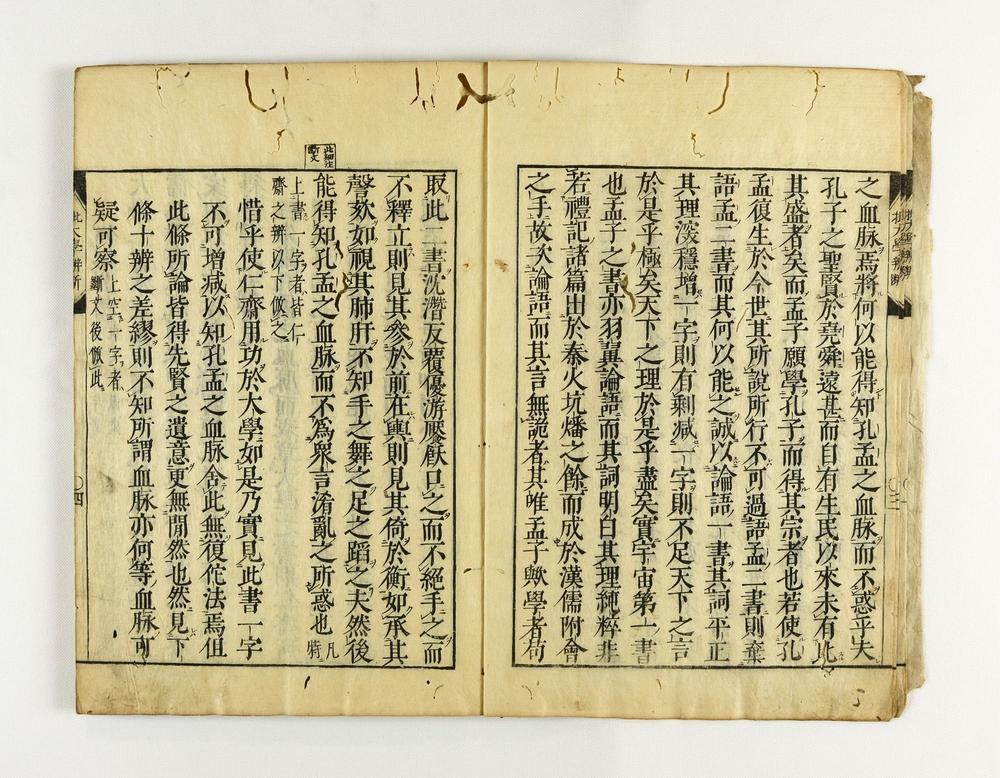 之血脉焉將何以能得知孔孟之血脉而不惑乎夫
孔子之聖賢於堯舜遠甚而自有生民以來未有此
其盛者矣而孟子願學孔子而得其宗者也若使孔
孟復生於今世其所說所行不可過語孟二書則棄
語孟二書而其何以能之誠以論語一書其詞平正
其理深穩增一字則有剩減一字則不足天下之言
於是乎極矣天下之理於是乎盡矣實宇宙第一書
也孟子之書亦羽翼論語而其詞明白其理純粹非
若禮記諸篇出於秦火坑燔之餘而成於漢儒附會
之手故次論語而其言無詭者其唯孟子歟學者苟
取此二書沈潛反覆優游厭飫口之而不絕手之而
不釋立則見其參於前在輿則見其倚於衡如承其
謦欬如視其肺肝不知手之舞之足之蹈之夫然後
能得知孔孟之血脉而不爲衆言淆亂之所惑也 凡特
此細注
斷文
上書一字者皆仁
齋之辨以下倣之
惜乎使仁齋用功於大學如是乃實見此書一字
不可增減以知孔孟之血脉舍此無復佗法焉但
此條所論皆得先賢之遺意更無間然也然見下
條十辨之差繆則不知所謂血脉亦何等血脉可
疑可察
上空一字者
斷文後倣此
批大學辨斷
四